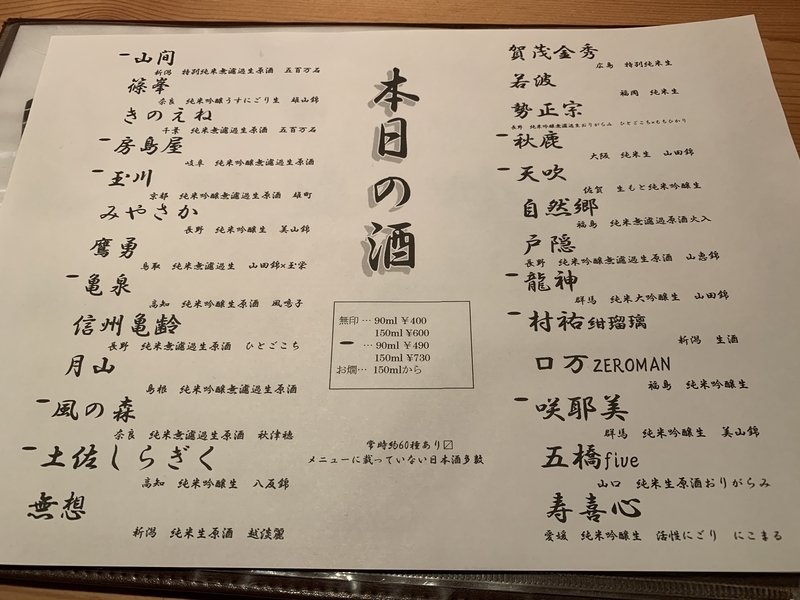 本日の酒
ー山間
新潟 特別純米無濾過生原酒 五百万石
篠峯
奈良 純米吟醸うすにごり生 雄山錦
きのえね
千葉 純米無濾過生原酒 五百万石
ー房島屋
岐阜 純米吟醸無濾過生原酒
ー玉川
京都 純米吟醸無濾過生原酒 雄町
みやさか
長野 純米吟醸無濾過生原酒 美山錦
鷹勇
鳥取 純米無濾過生 山田錦×玉栄
ー亀泉
高知 純米吟醸生原酒 風鳴子
信州亀齢
長野 純米無濾過生原酒 ひとごこち
月山
島根 純米吟醸無濾過生原酒
ー風の森
奈良 純米無濾過生原酒 秋津穂
ー土佐しらぎく
高知 純米吟醸生 八反錦
無想
新潟 純米生原酒 越淡麗
無印… 90ml ¥400
150ml ¥600
ー … 90ml ¥490
150ml ¥730
お燗… 150mlから
常時約60種あり〼
メニューに載っていない日本酒多数
賀茂金秀
広島 特別純米生
若波
福岡 純米生
勢正宗
長野 純米吟醸無濾過生おりがらみ ひとごこち×もちひかり
ー秋鹿
大阪 純米生 山田錦
ー天吹
佐賀 生もと純米吟醸生
自然郷
福島 純米無濾過原酒火入
戸隠
長野 純米吟醸無濾過生原酒 山恵錦
ー龍神
群馬 純米大吟醸生 山田錦
ー村祐紺瑠璃
新潟 生酒
ロ万ZEROMAN
福島 純米吟醸生
ー咲耶美
群馬 純米吟醸生 美山錦
五橋five
山口 純米生原酒おりがらみ
寿喜心
愛媛 純米吟醸生 活性にごり にこまる